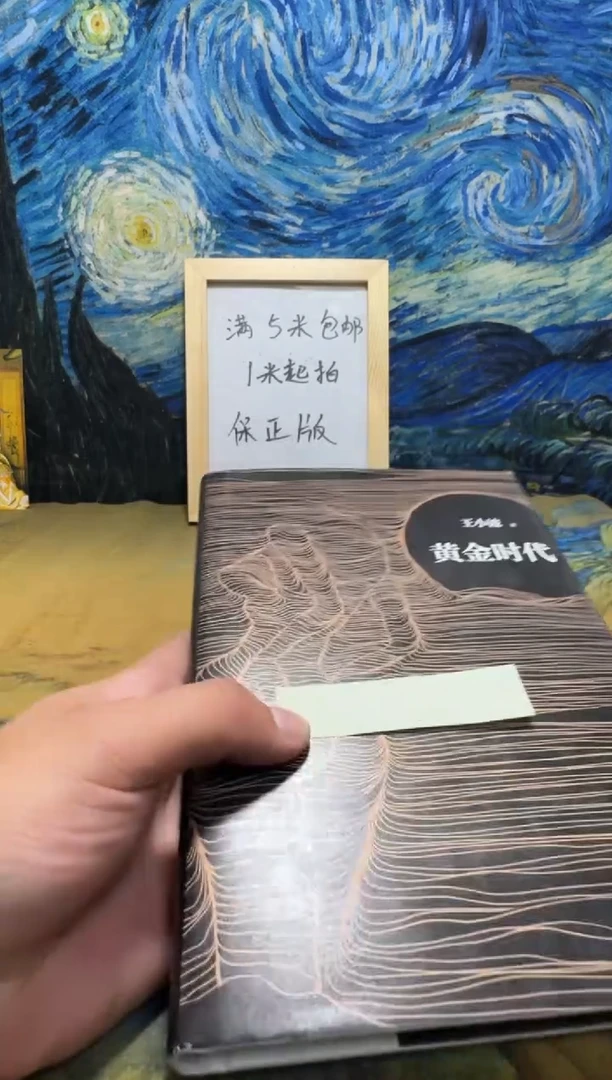 满5米包邮
1米起拍
保正版
王小波
黄金时代